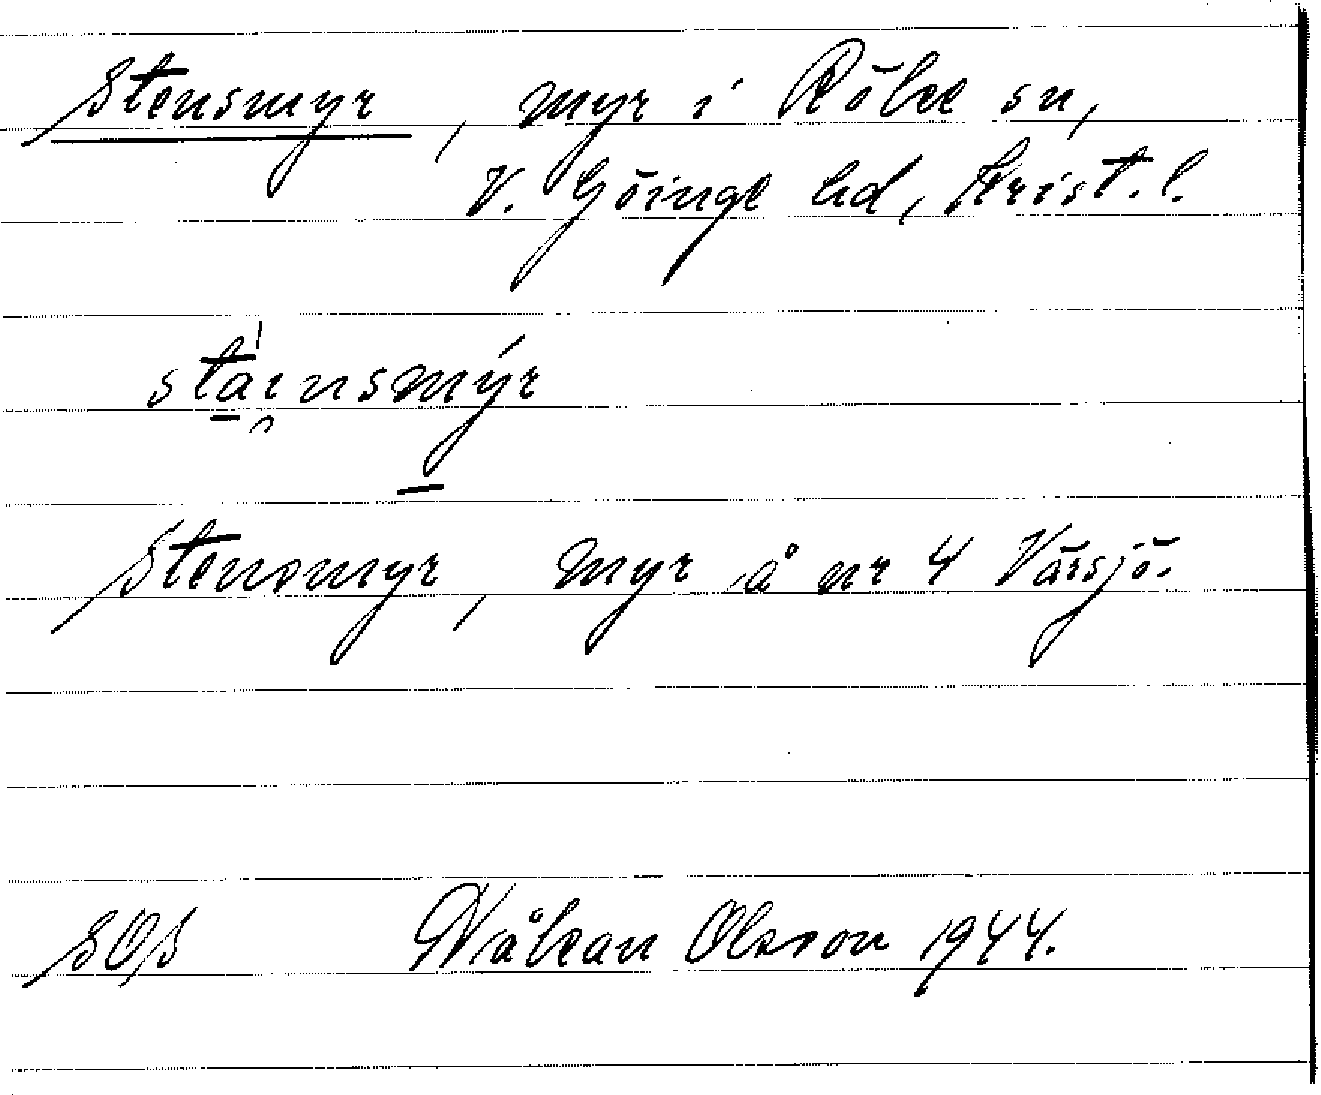 Stensmyr, myr i Röke sn,
V. Göinge hd, Krist. l.
stäinsmýr
Stensmyr, myr å nr 4 Värsjö.
SOS Håkan Olsson 1944.